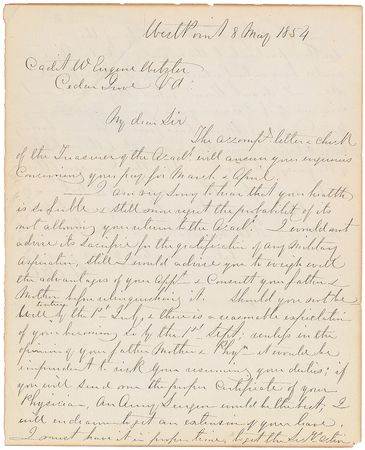 West Point 8 May 1854
Cadt W Eugene Webster
Cedar Grove Va.
My dear Sir
The accompg. letter & check
of the Treasurer of the Acady. will answer your enquiries
Concerning your pay for March & April.
I am very sorry to hear that your health
is so feeble & still more regret the probability of its
not allowing your return to the Acady. I would not
advise its sacrifice for the gratification of any Military
aspiration, still I would advise you to weigh well
the advantages of your Appt. & Consult your father &
Mother before relinquishing it. Should you not be
Well by the 1st July, & there is a reasonable expectation
of your becoming so by the 1st Sept, unless in the
opinion of your father Mother & Phyn. it would be
imprudent to risk your resuming your duties; if
you will send me the proper Certificate of your
Physician, An Army Surgeon would be the best, I
will endeavour to get an extension of your leave.
I must have it in proper time, to get the Secy's action